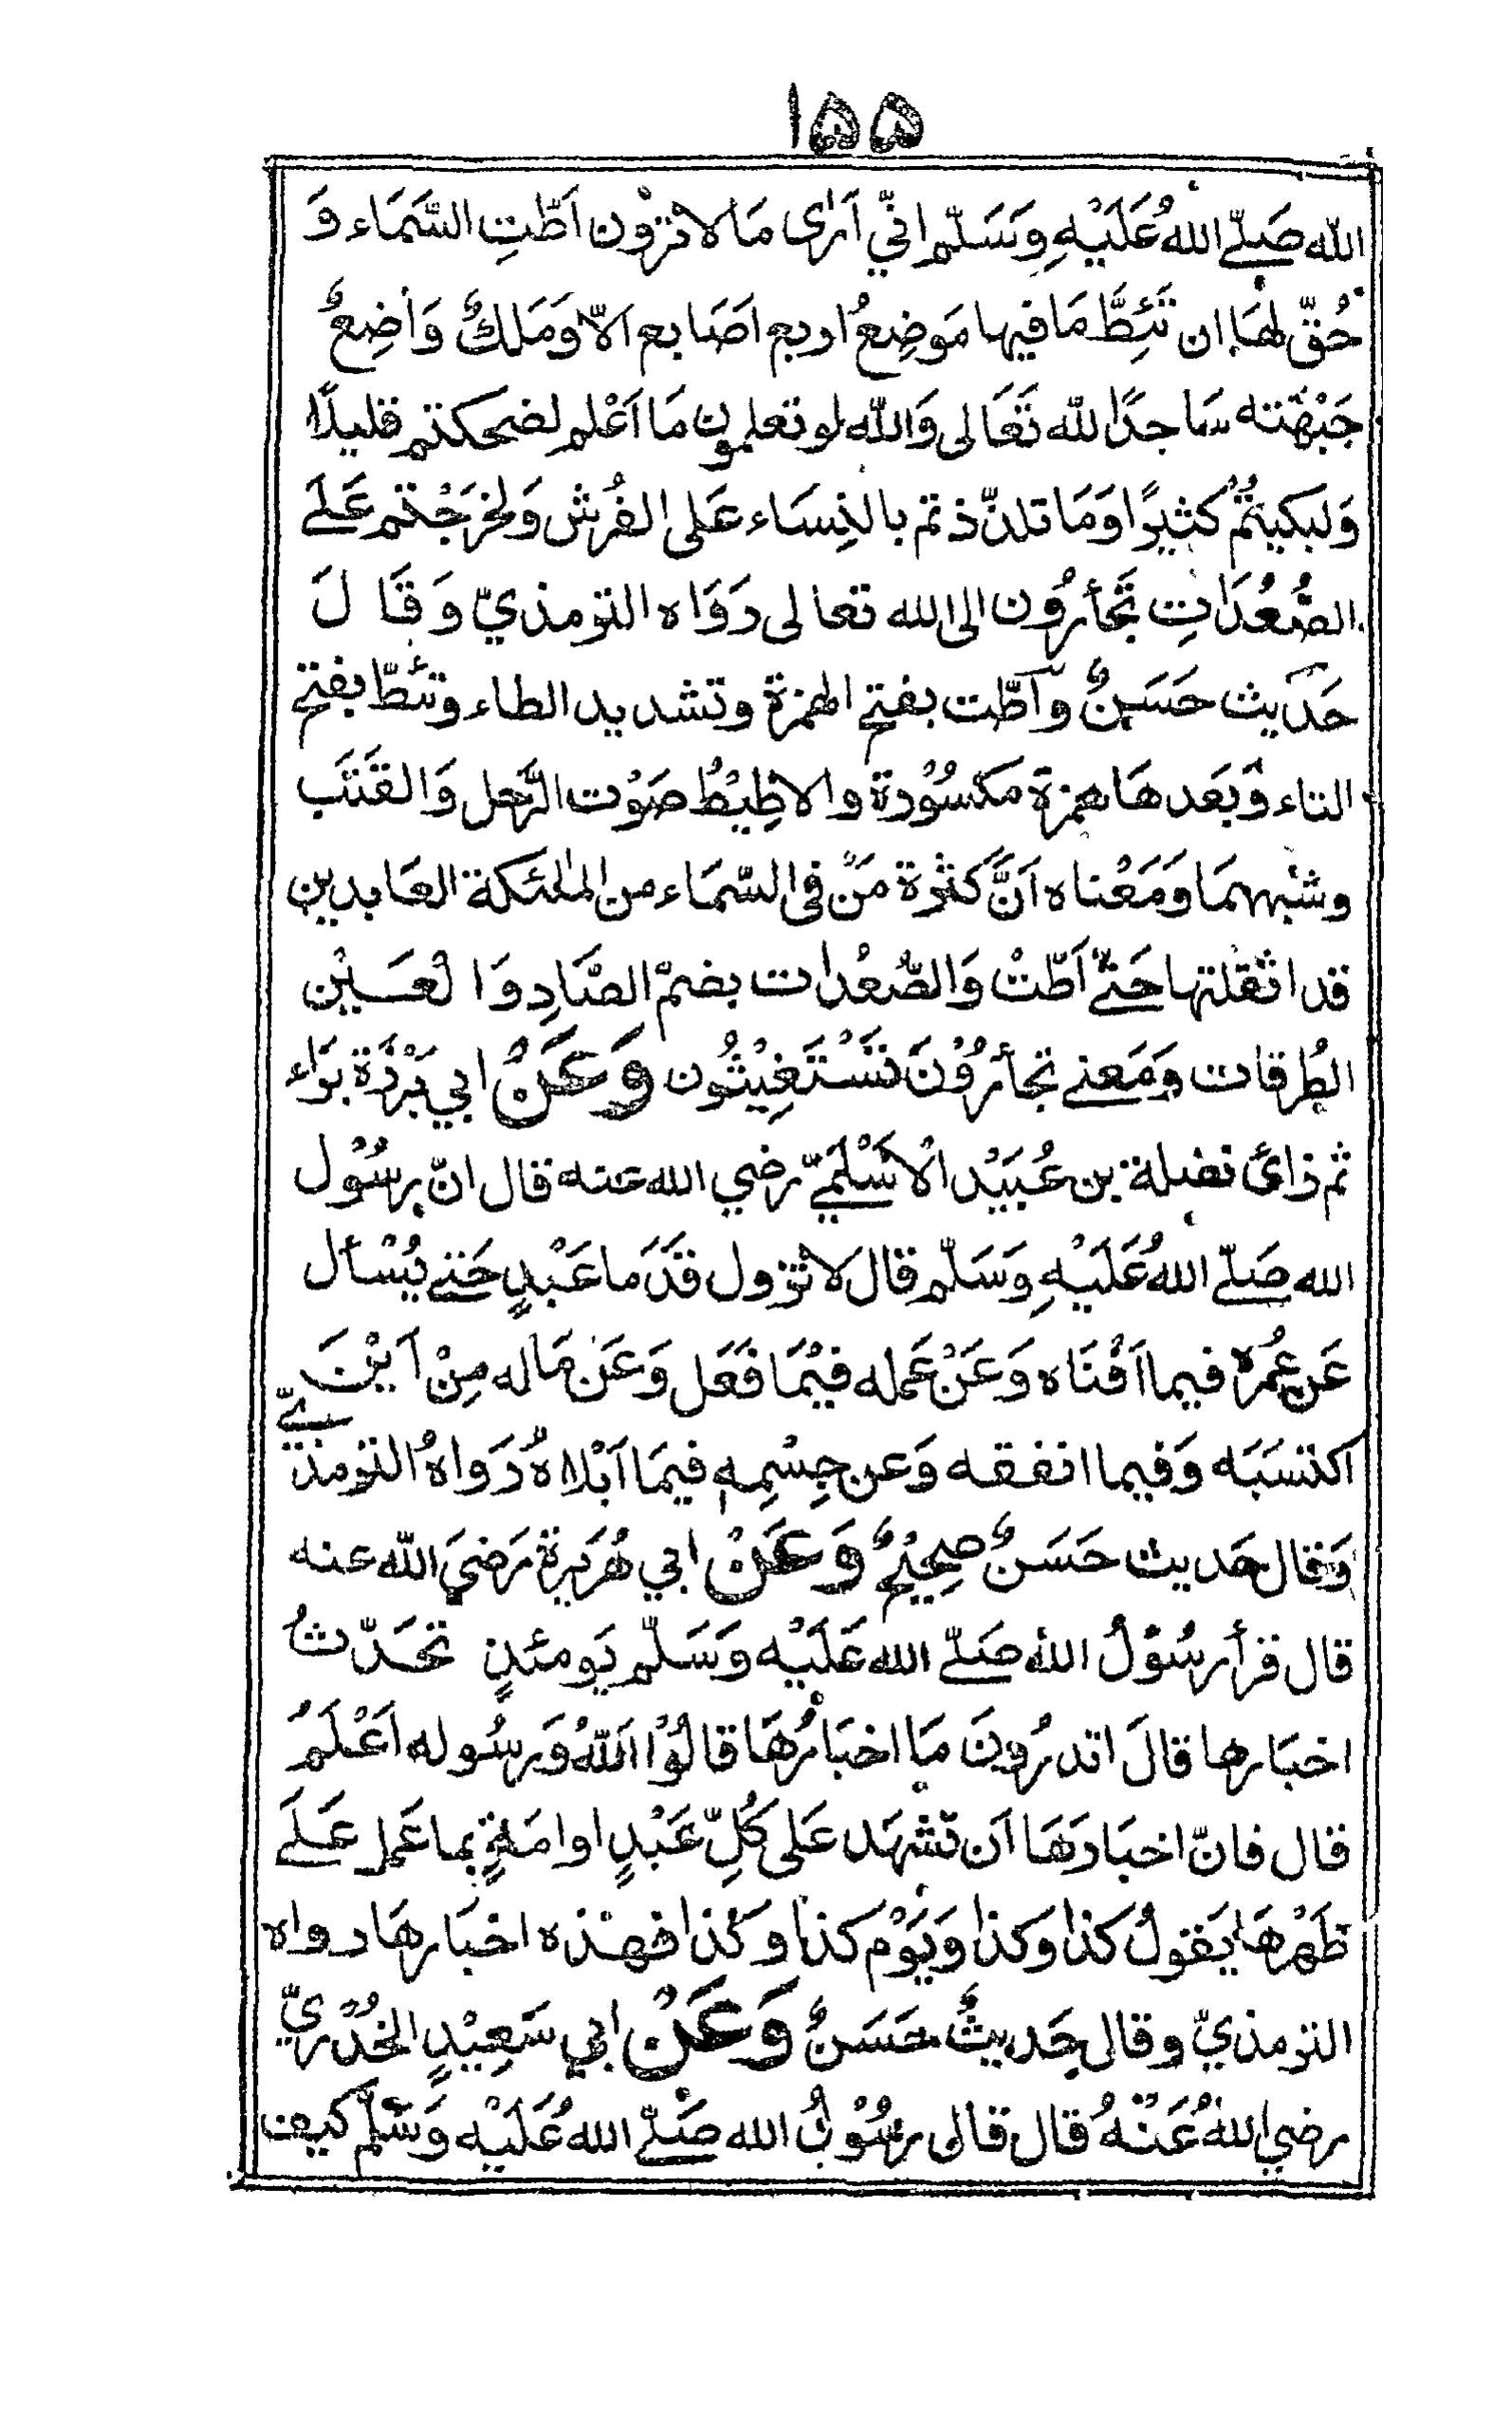 ١٥٥
الله صَلّے اللهُ عَلَيْهِ وَسَلّم اِنّي اَرٰى مَا لا ترَوْن اَطّتِ السَّمَاء وَ
حُقّ لهَا ان تَئِطَّ مَا فيها مَوضِعُ اربع اصَابع اِلاّ وَمَلكٌ وَاضِعٌ
جَبْهَته سَاجدًا لله تَعَالى وَالله لو تعلمون مَا اَعْلم لضحكتم قليلًا
وَلبكيتُمْ كثيرًا وَمَا تلذّذتم بالنِسَاء عَلى الفُرش وَلخرَجْتم عَلَے
الصُّعُدَاتِ تَجأرُون الى الله تعالى رَوَاه الترمذيّ وَقَالَ
حَديث حَسَنٌ وَاَطّت بفتح الهمزة وتشديد الطاء وتئطّ بفتح
التاء وَبَعدهَا همزة مَكسُوْرة والاطِيْطُ صَوْت الرَّحل وَالقَتَب
وشبههمَا وَمَعْناه اَنَّ كَثرة مَنْ فى السّمَاء من الملٰئكة العَابدين
قد اثقلتها حَتّےٰ اَطّتْ وَالصُّعُدات بضمّ الصَّادِ وَالْعَسَيْن
الطُرقات وَمَعنے تجأرُوْنَ تَسْتَغِيْثُون وَعَنْ ابي بَرْزَة بَرَاء
ثم زائ نضلة بن عُبَيْد الْاَسْلَمِيّ رضي الله عنه قال انّ رسُوْل
الله صَلّے اللهُ عَلَيْهِ وَسَلّم قال لا تزول قَدَمَا عَبْدٍ حَتے يُسْأل
عَن عُمره فيما اَفْنَاه وَعَنْ عَمله فيْمَا فَعَل وَعَن مَاله مِنْ اَيْنَ
اكتسَبَه وَفيما انفقه وَعن جِسْمِه فيمَا اَبْلاهُ رَوَاهُ الترمذيّ
وَقال حَديث حَسَنٌ صحِيْحٌ وَعَنْ ابي هُرَيرة رَضيَ اللّه عنه
قال قرأ رسُوْلُ الله صَلّے الله عَلَيْه وَسَلّم يَومئذٍ تحَدّثُ
اخبَارها قالَ اتدرُونَ مَا اخبَارُهَا قالُوْا اَللهُ وَرسُوله اَعْلَمُ
قال فانّ اخبَارَهَا اَن تشهَد عَلى كُلِّ عَبْدٍ او امَةٍ بما عَمل عَلَے
ظَهْرهَا يَقولُ كذا وكذا وَيَوْم كذا وكذا فهٰذه اخبَارهَا رواه
الترمذيّ وقال حَديثٌ حَسَنٌ وَعَنْ ابي سَعِيْدٍ الخُدْريّ
رضي اللهُ عَنْهُ قال قال رسُوْلُ الله صَلّے اللهُ عَلَيْه وَسَلّم كيف